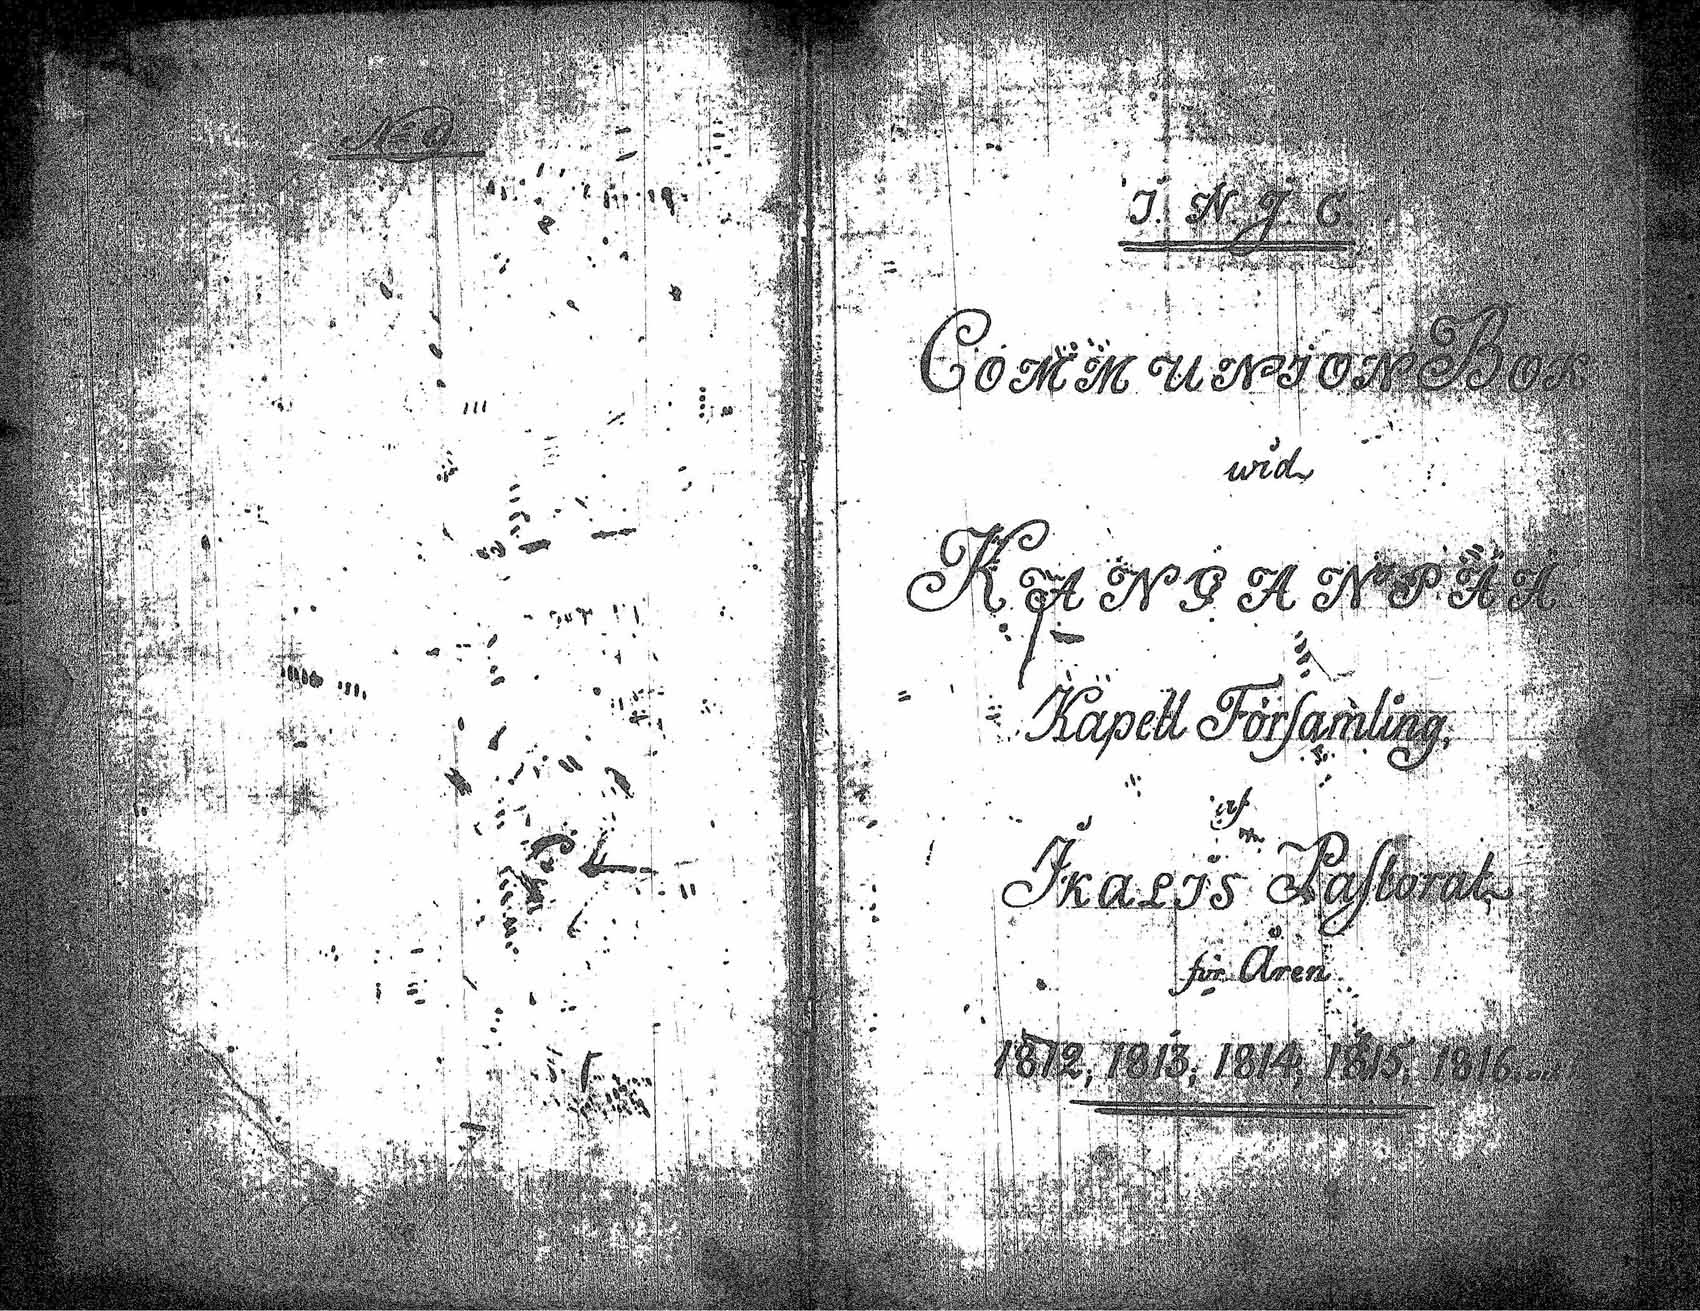 N:o 9
I. N. J. C.
COMMUNION BOK
wid
KANGANPÄÄ
Kapell Församling,
af
IKALIS Pastorat
för Åren
1812, 1813, 1814, 1815, 1816